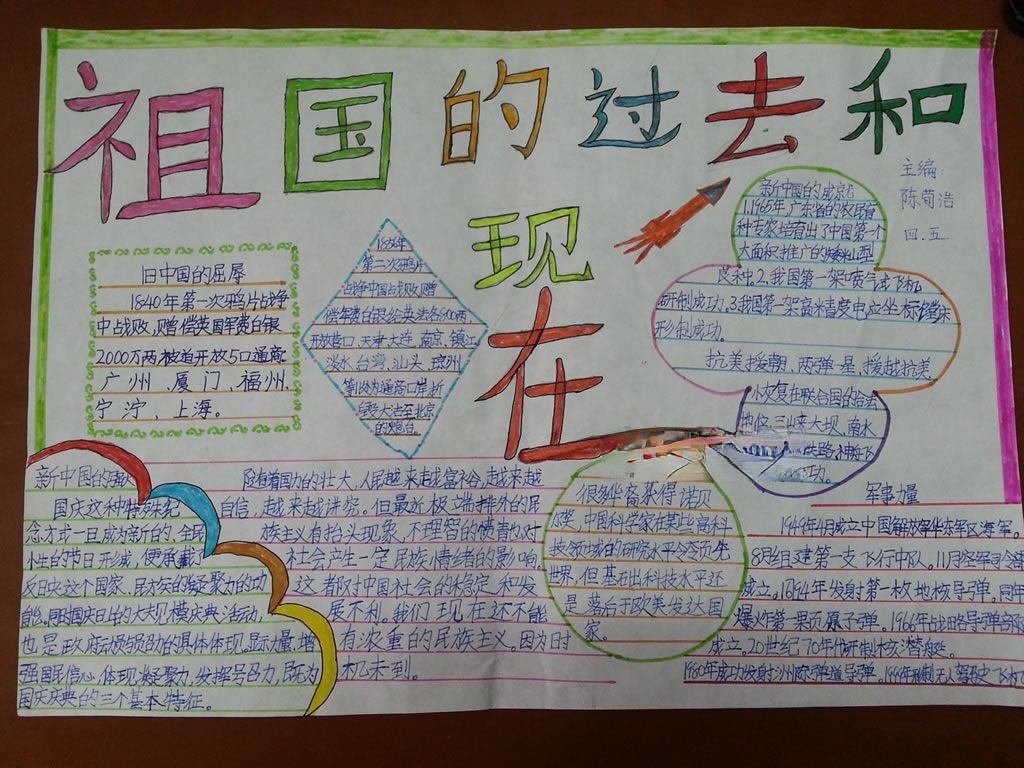 祖国的过去和
现
在
主编:
陈荀浩
四.五
旧中国的屈辱
1840年第一次鸦片战争
中战败,赔偿英国军费白银
2000万两被迫开放5口通商
广州、厦门、福州、
宁泞、上海。
1856年
第二次鸦片
战争中国战败,赔
偿军费白银给英法各800两,
开放营口,天津大连、南京、镇江
淡水、台湾、汕头、琼州
等 内通商口岸,拆
大沽至北京
的炮台。
新中国的成就
1.1965年,广东省的农民育
种专家培育出了中国第一个
大面积推广的矮秆型
良种.2.我国第一架喷气式飞机
研制成功.3.我国第一架高米青度电应坐标镗床
形制成功。
抗美援朝、两弹一星、援越抗美、
小灰复在联合国的合法
地位,三峡大坝、南水
铁路
功。
新中国的
国庆这种特殊纪
念方式一旦成为新的、全民
性的节日形成,便承载了
反映这个国家、民族的凝聚力的功
能.同时国庆日上的大规模庆典活动,
也是政府动员 的具体体现.显示力量,增
强国民信心,体现凝聚力,发挥号召力,既为
国庆庆典的三个基本特征。
随着国力的壮大,人民越来越富裕,越来越
自信,越来越讲究。但最近极端排外的民
族主义有抬头现象,不理智的愤青也对
社会产生一定民族情绪的影响,
这都对中国社会的稳定和发
展不利。我们现在还不能
有浓重的民族主义。因为时
机未到。
很多华裔获得诺贝
尔奖,中国科学家在某些高科
技领域的研究水平令领先
世界,但基础出科技水平还
是落后于欧美发达国
家。
军事力量
1949年4月成立中国解放军华东军区海军。
8月组建第一支飞行中队。11月空军司令部
成立。1964年发射第一枚地核导弹。同年
爆炸第一果页原子弹。1966年战略导弹部队
成立。20世纪70年代研制核潜艇。
1980年成功发射 洲际弹道导弹。